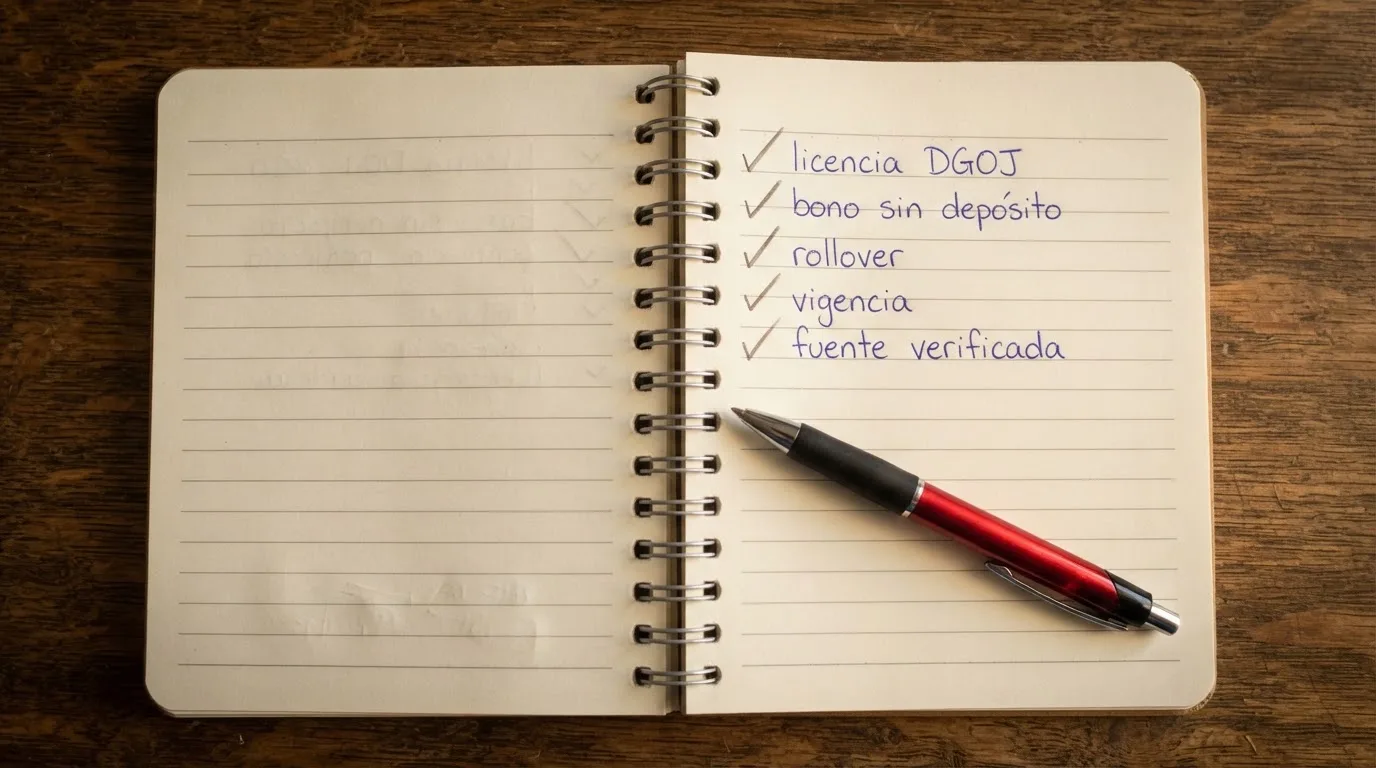 licencia DGOJ
bono sin depósito
rollover
vigencia
fuente verificada